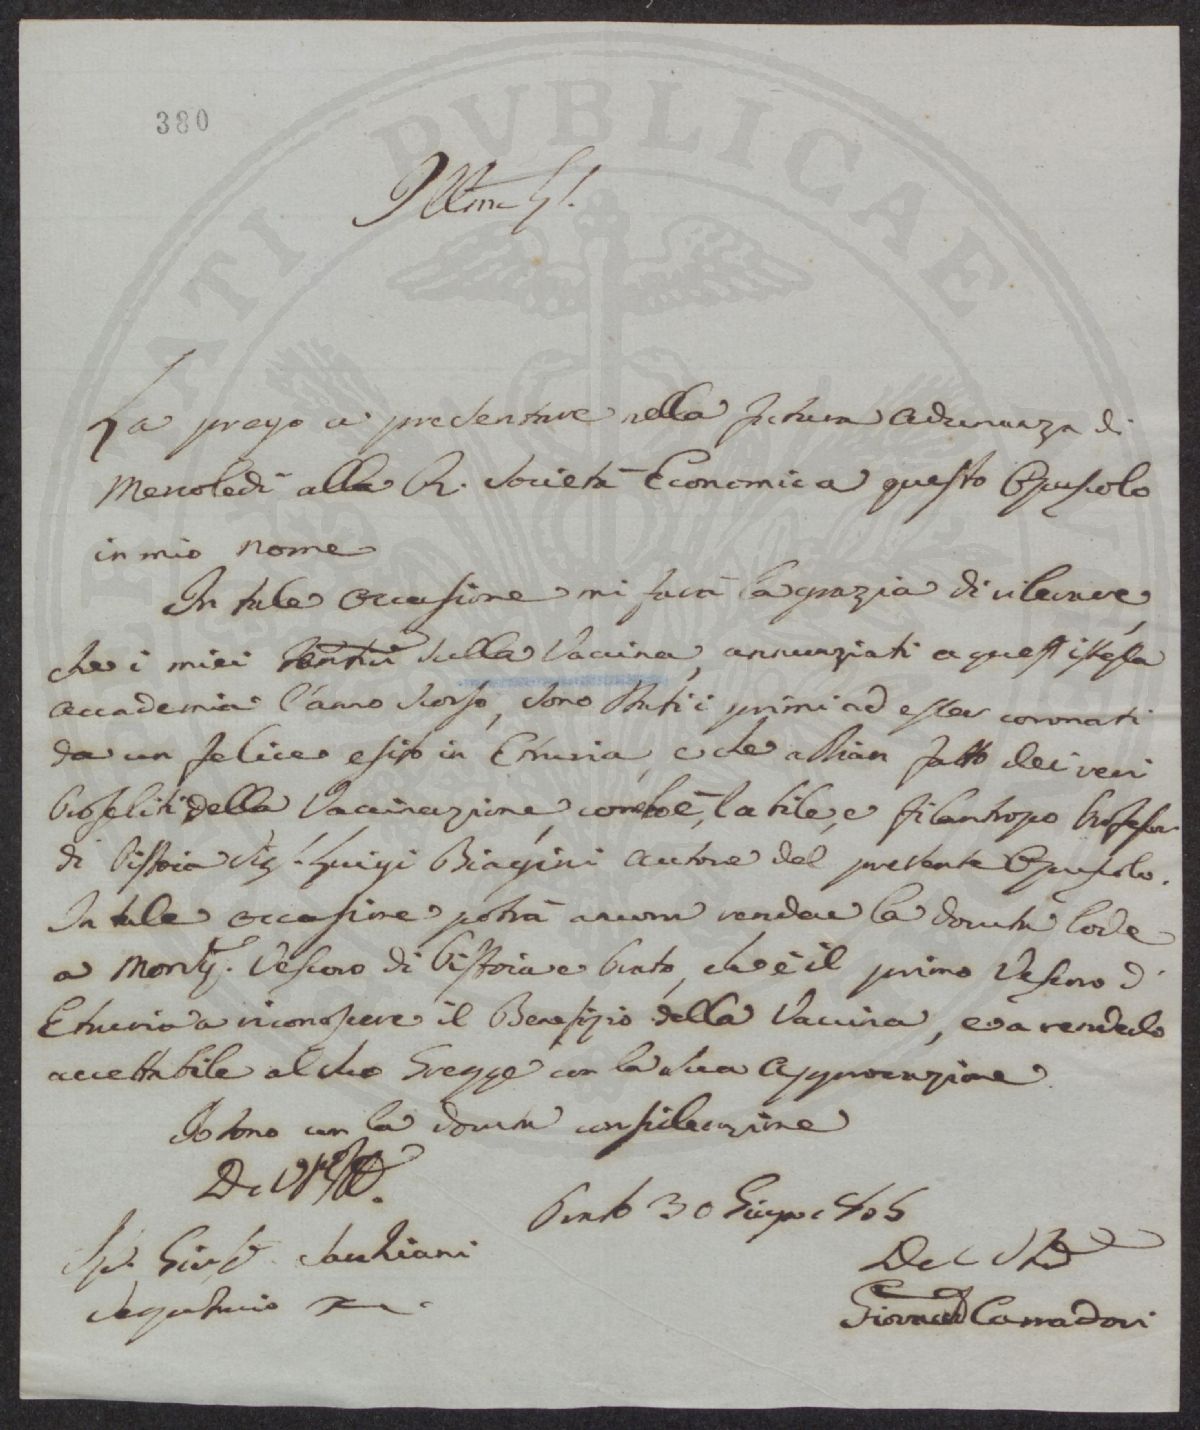 380
PUBLICAE
Illmo Sig.
La prego a presentare nella futura adunanza di
Mercoledì alla R. Società Economica questo Opuscolo
in mio nome
In tale occasione mi farà la grazia di rilevare,
che i miei sulla Vaccina, annunziati a quest'istessa
Accademia l'anno scorso, sono stati i primi ad esser coronati
da un felice esito in Etruria, e che abbian fatto dei veri
Proseliti della Vaccinazione, com'è, l'abile, e filantropo Professor
di Pistoia Sig. Luigi Biagini autore del presente Opuscolo.
In tale occasione potrà ancora rendere la dovuta lode
a Monsig. Vescovo di Pistoia e Prato, che è il primo Vescovo d'
Etruria a riconoscere il Benefizio della Vaccina, e a renderlo
accettabile al suo Gregge con la sua Approvazione
Io sono con la dovuta considerazione
Di VS Ill.
Prato 30 Giugno 1805
Sig. Gius. Sarchiani
Segretario
Giovacch Carradori